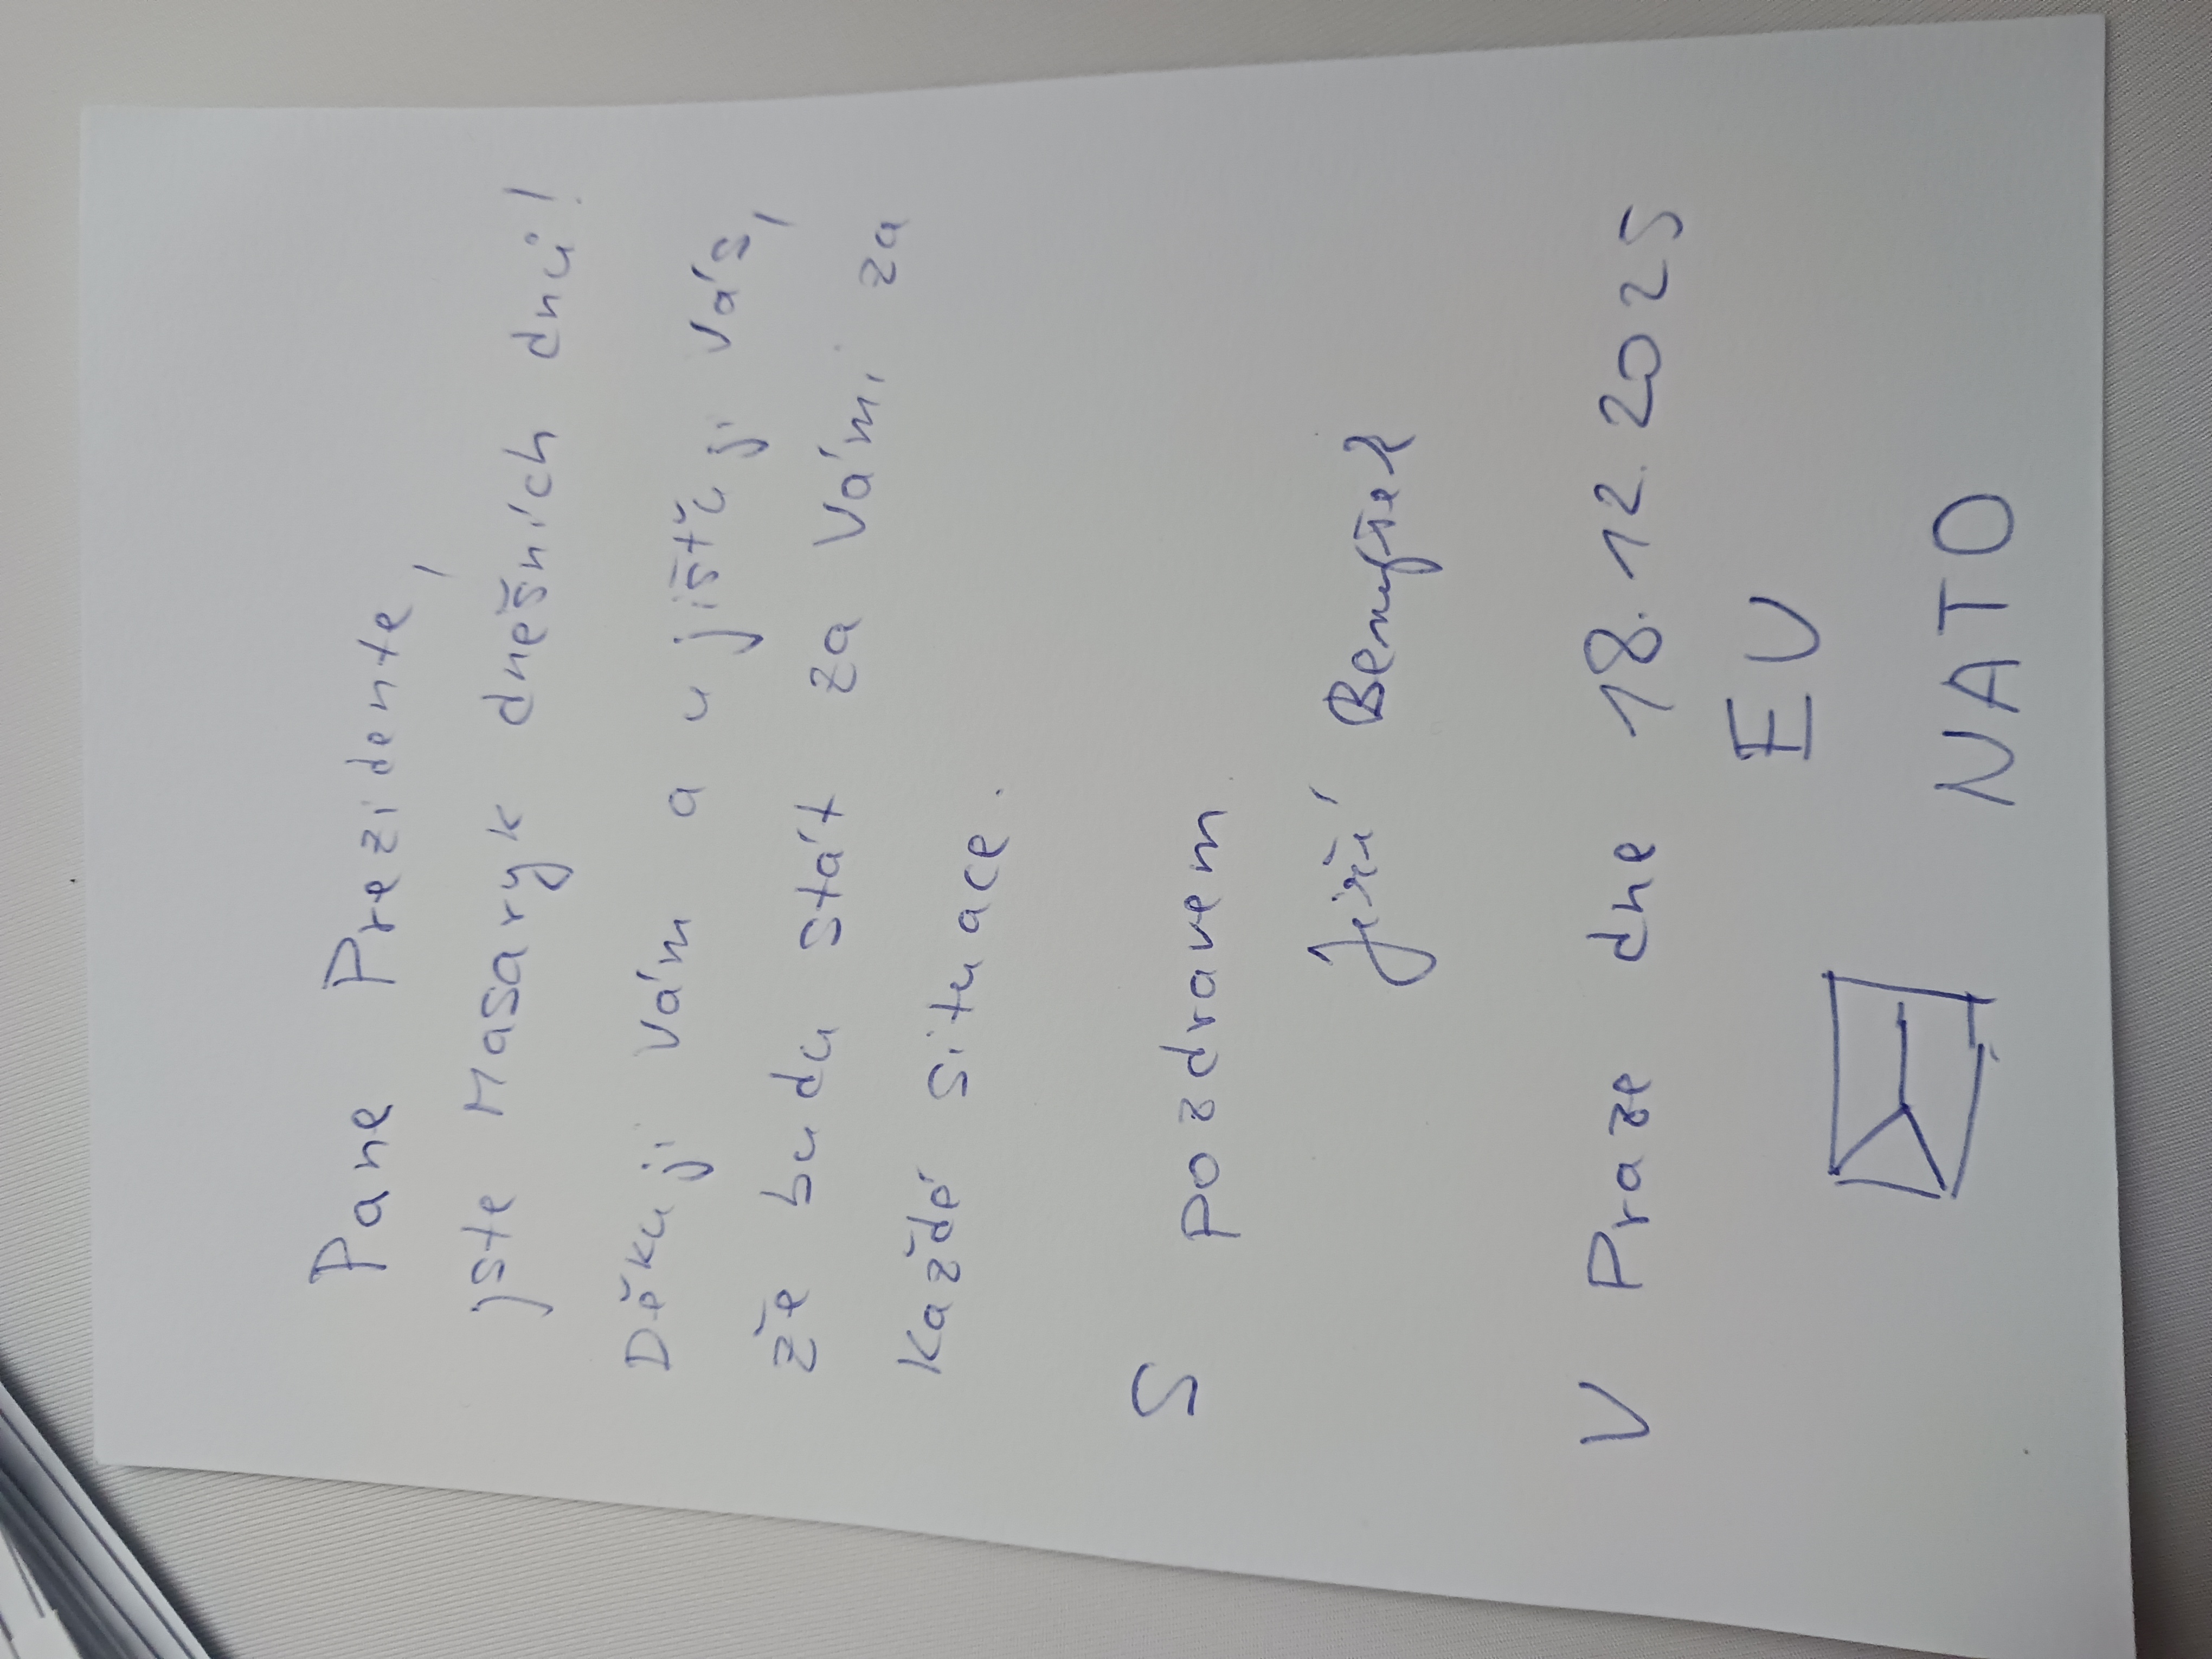 Pane Prezidente,
jste Masaryk dnešních dnů!
Děkuji Vám a ujišťuji Vás,
že budu stát za Vámi za
každé situace.
S pozdravem
Jiří
V Praze dne 18.12.2025
EU
NATO